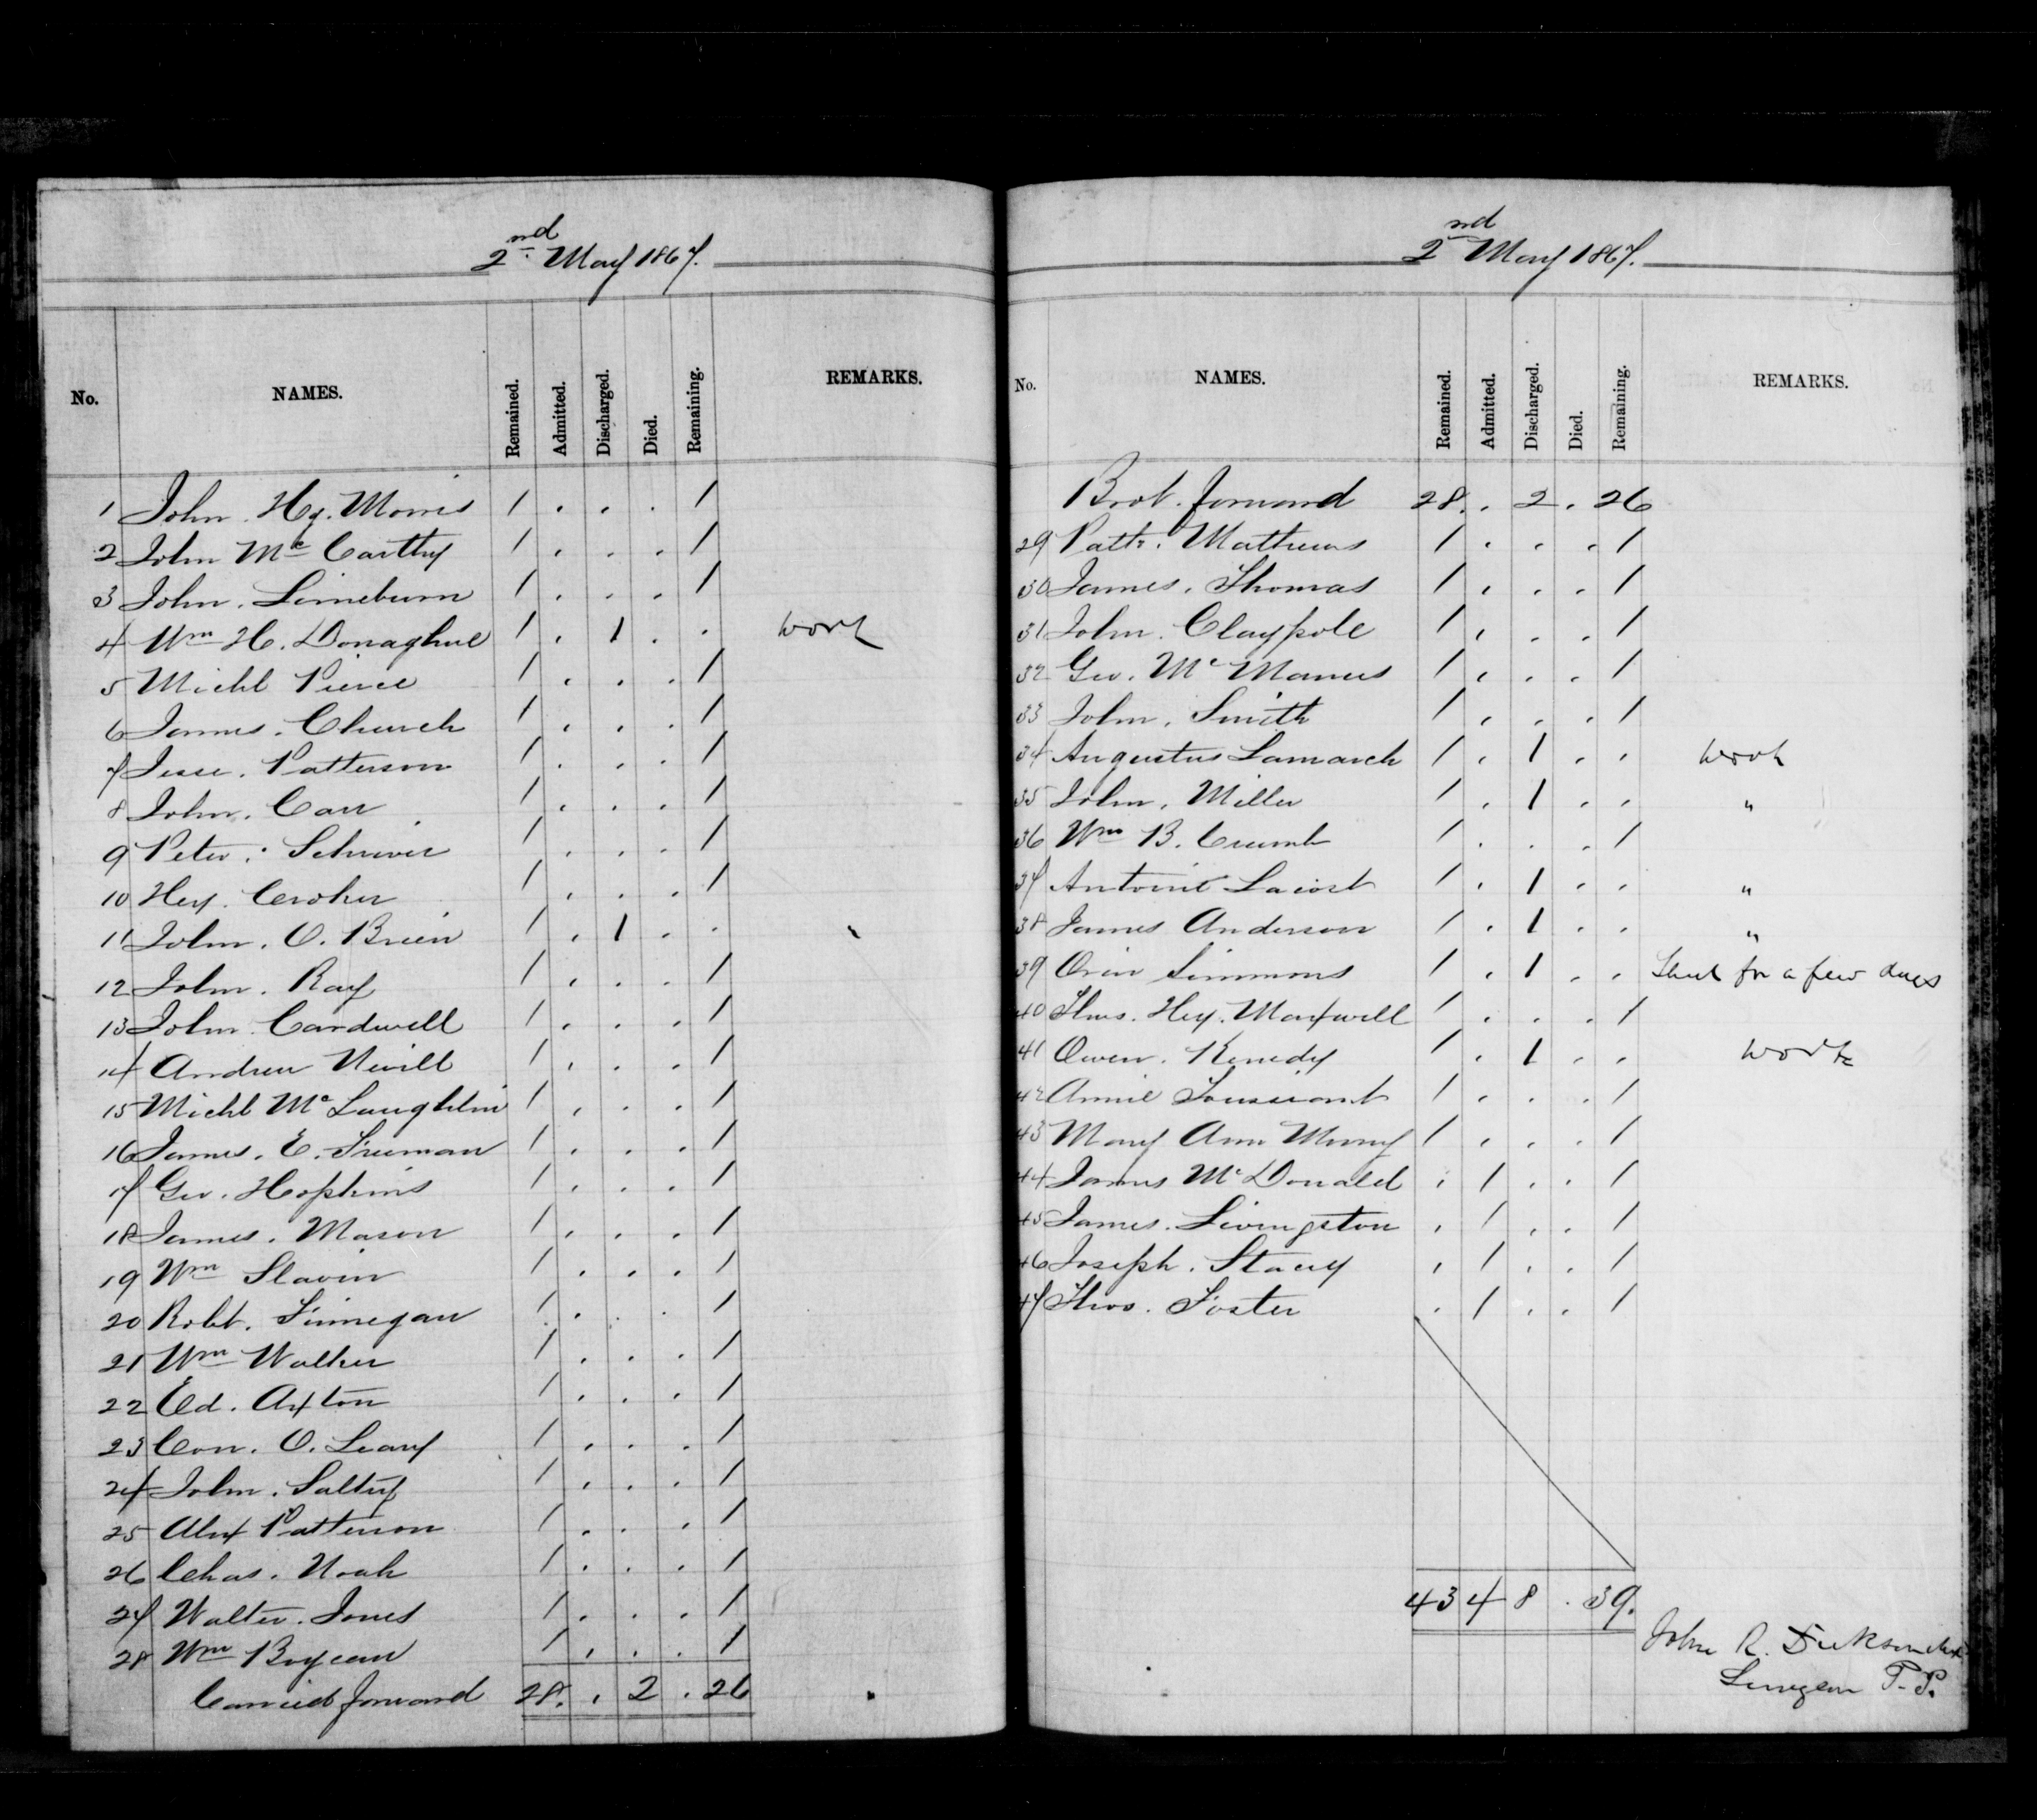 2nd May 1867.
No. NAMES. Remained. Admitted. Discharged. Died. Remaining. REMARKS.
1 John Hy. Morris 1 . . . 1
2 John Mc Carthy 1 . . . 1
3 John. Limeburn 1 . . . 1
4 Wm H. Donaghue 1 . 1 . . work
5 Michl Pierce 1 . . . 1
6 James. Church 1 . . . 1
7 Jesse. Patterson 1 . . . 1
8 John. Carr 1 . . . 1
9 Peter. Schriver 1 . . . 1
10 Hey. Croker 1 . . . 1
11 John. O. Brien 1 . 1 . . "
12 John. Ray 1 . . . 1
13 John Cardwell 1 . . . 1
14 Andrew Nevill 1 . . . 1
15 Michl Mc Laughlin 1 . . . 1
16 James. E. Freeman 1 . . . 1
17 Geo. Hopkins 1 . . . 1
18 James. Mason 1 . . . 1
19 Wm Slavin 1 . . . 1
20 Robt. Finnegan 1 . . . 1
21 Wm Walker 1 . . . 1
22 Ed. Axton 1 . . . 1
23 Con. O. Leary 1 . . . 1
24 John. Saltry 1 . . . 1
25 Alex Patterson 1 . . . 1
26 Chas. Noah 1 . . . 1
27 Walter. Jones 1 . . . 1
28 Wm Boyceau 1 . . . 1
Carried forward 28. . 2 . 26
2nd May 1867.
No. NAMES. Remained. Admitted. Discharged. Died. Remaining. REMARKS.
Brot. forward 28. . 2 . 26
29 Patk. Mathews 1 . . . 1
30 James. Thomas 1 . . . 1
31 John. Claypole 1 . . . 1
32 Geo. Mc Manus 1 . . . 1
33 John. Smith 1 . . . 1
34 Augustus Lamarch 1 . 1 . . work
35 John. Miller 1 . 1 . . "
36 Wm B. Crumb 1 . . . 1
37 Antoine Laciost 1 . 1 . . "
38 James Anderson 1 . 1 . . "
39 Orin Simmons 1 . 1 . . for a few days
40 Thos. Hey. Maxwell 1 . . . 1
41 Owen. Kenedy 1 . 1 . . work
42 Annie Toussiant 1 . . . 1
43 Mary Ann Murry 1 . . . 1
44 James Mc Donald . 1 . . 1
45 James. Livingston . 1 . . 1
46 Joseph. Stacey . 1 . . 1
47 Thos. Foster . 1 . . 1
43 4 8 . 39.
John R. Dickson
Surgeon P.P.